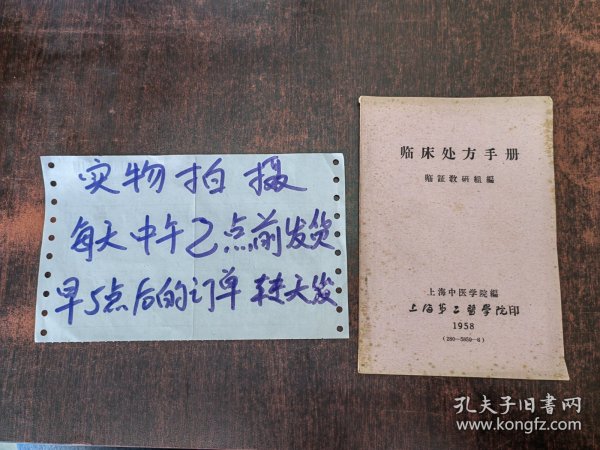 实物拍摄
每天中午2点前发货
早5点后的订单转天发
临床处方手册
临証教研組編
上海中医学院編
上海第二醫学院印
1958
(280—5859—6)
孔夫子旧书网
www.kongfz.com